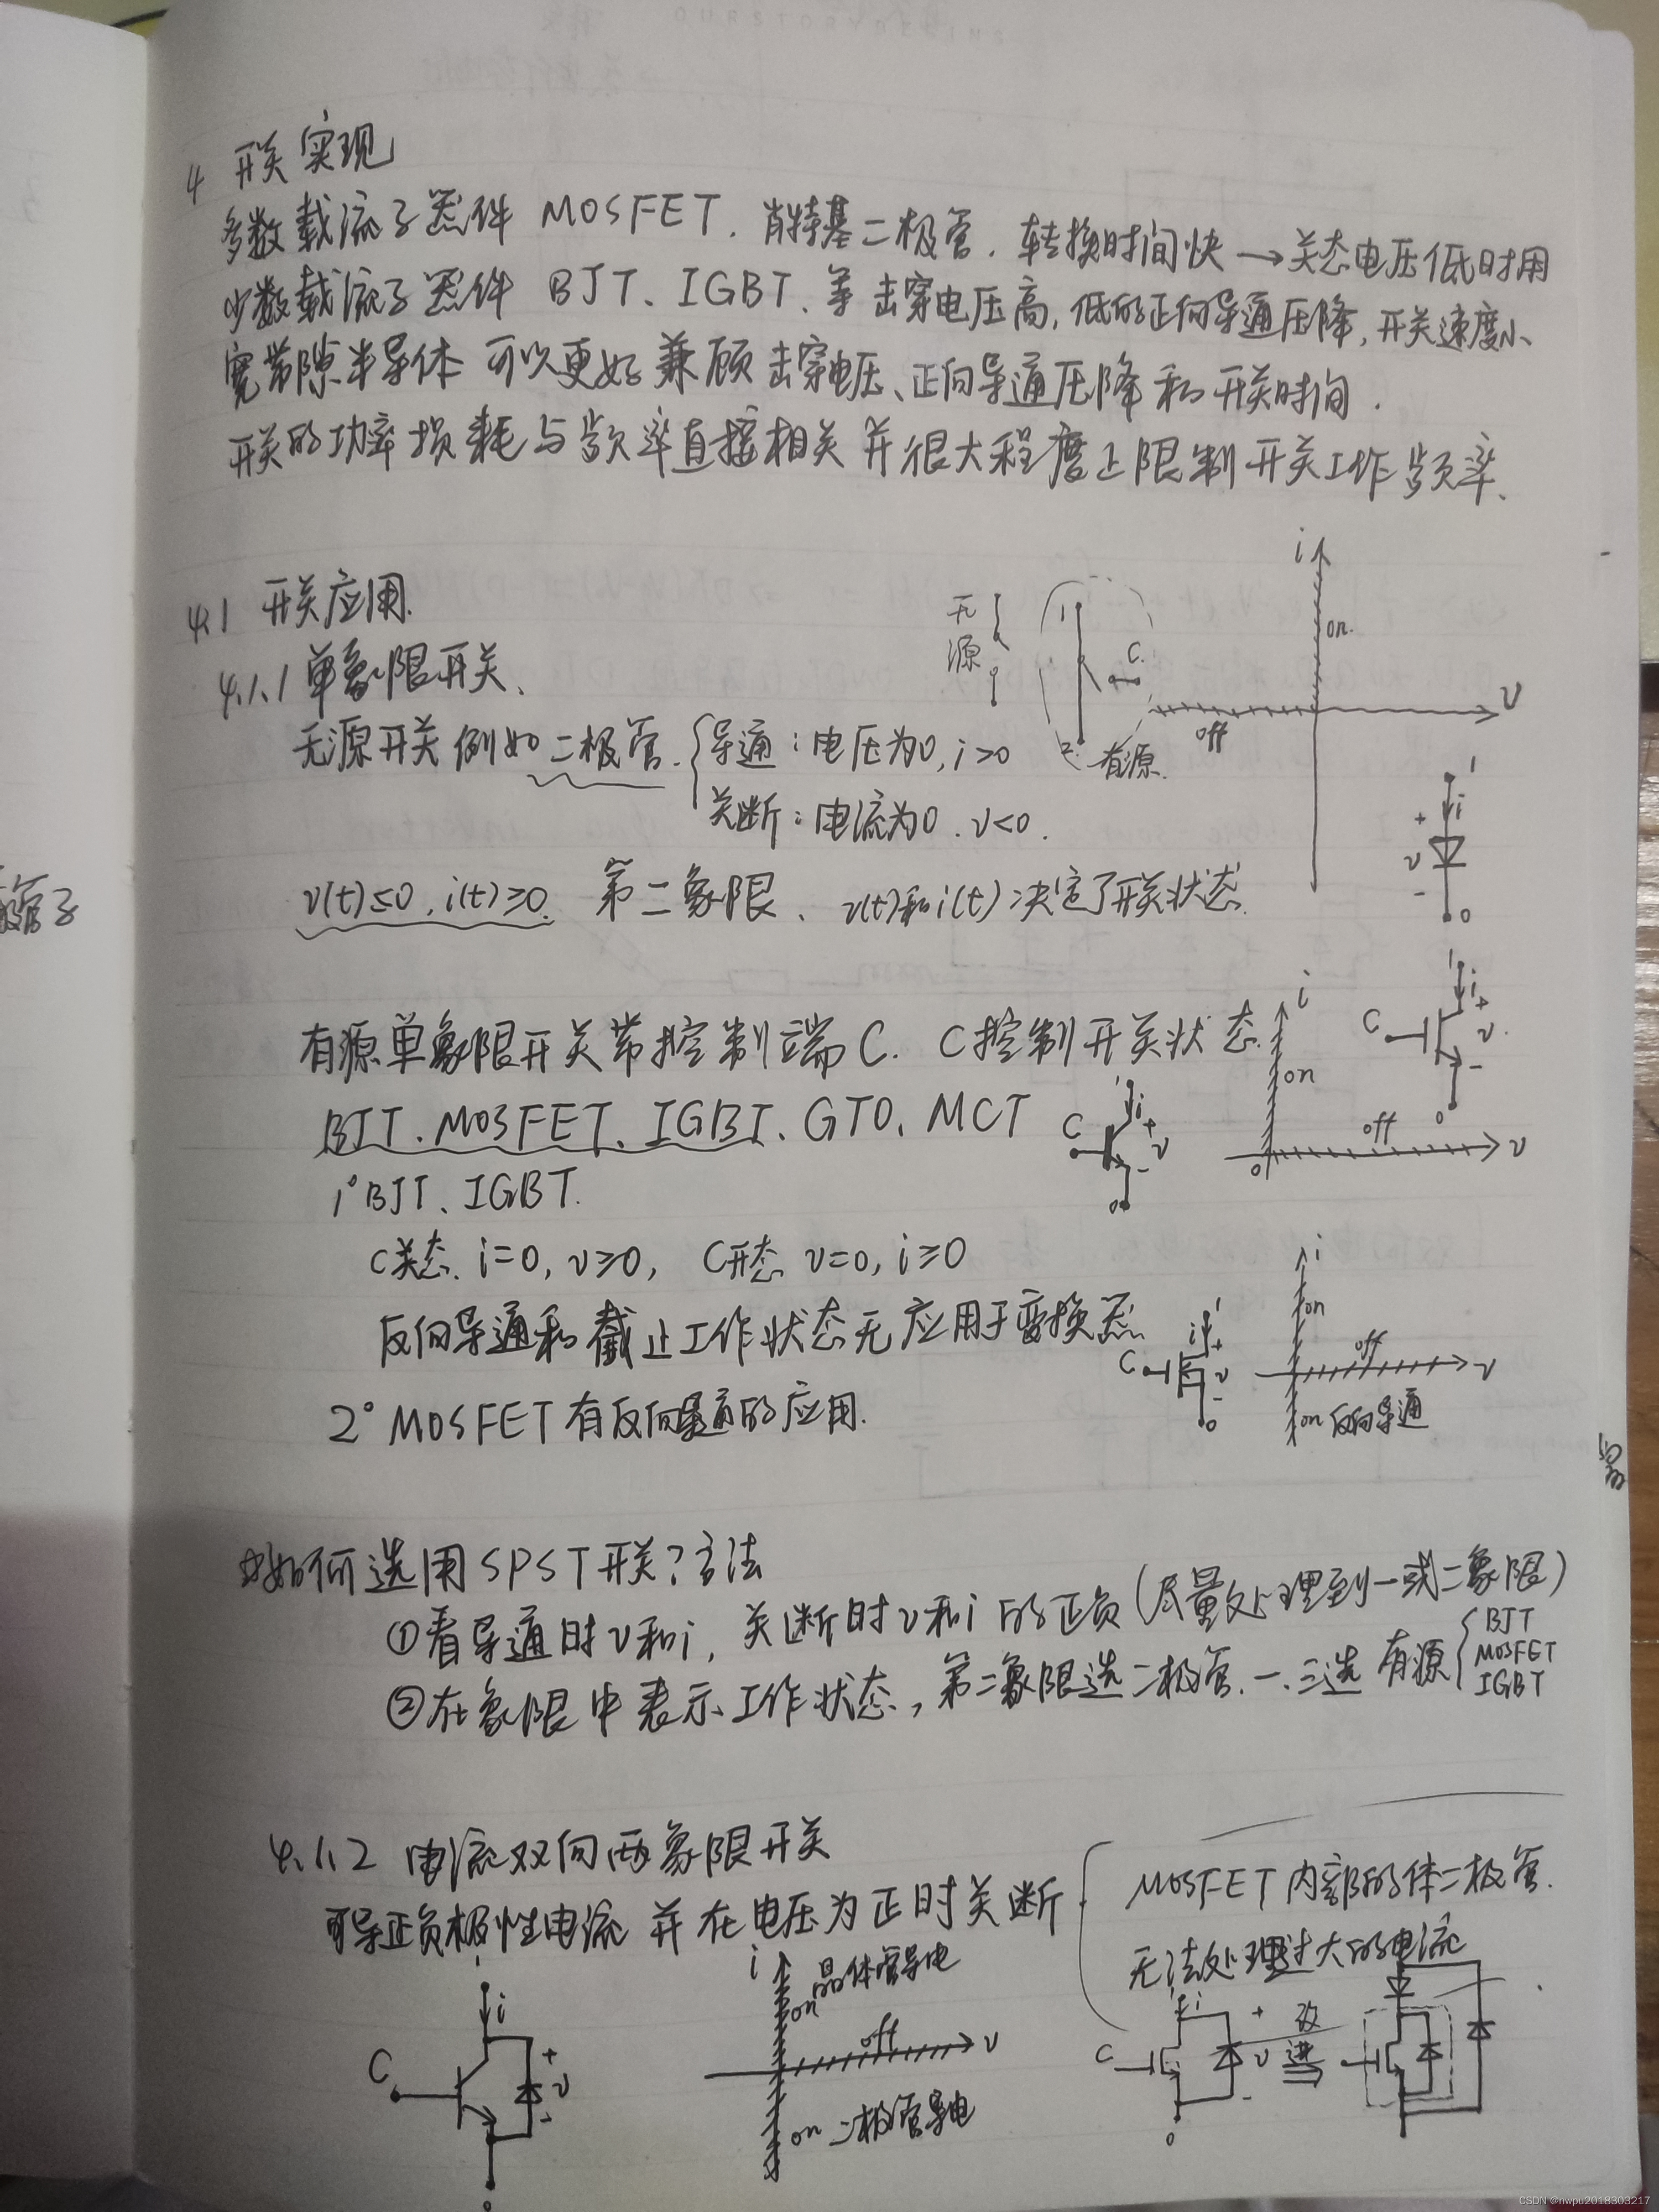 4 开关实现
多数载流子器件 MOSFET、肖特基二极管、转换时间快→关态电压低时用
少数载流子器件 BJT、IGBT、等 击穿电压高,低的正向导通压降,开关速度小、
宽带隙半导体 可以更好兼顾击穿电压、正向导通压降和开关时间.
开关的功率损耗与频率直接相关并很大程度上限制开关工作频率、
4.1 开关应用.
4.1.1 单象限开关、
无源
1
C
2
有源.
i
on.
off
v
无源开关例如二极管. 导通:电压为0, i>0
关断:电流为0. v<0.
1
i
+
v
-
0
v(t)≤0, i(t)≥0. 第二象限、v(t)和i(t)决定了开关状态.
有源单象限开关带控制端C. C控制开关状态.
BJT、MOSFET、IGBT、GTO、MCT
C
1
i
+
v
-
0
C
1
i
+
v
-
0
i
on
off
0
v
1° BJT、IGBT.
C关态. i=0, v≥0, C开态 v=0, i≥0
反向导通和截止工作状态无应用于变换器.
2° MOSFET 有反向导通的应用.
C
1
i
+
v
-
0
i
on
off
v
on 反向导通
如何选用SPST开关?方法
①看导通时v和i, 关断时v和i的正负(尽量处理到一或二象限)
②在象限中表示工作状态, 第二象限选二极管. 一、三选 有源 BJT
MOSFET
IGBT
4.1.2 电流双向两象限开关
可导正负极性电流 并在电压为正时关断
MOSFET内部的体二极管.
无法处理过大的电流
1
i
C
+
v
-
0
i
on 晶体管导电
off
v
on 二极管导电
i
C
+
v
-
0
改进
CSDN @nwpu2018303217